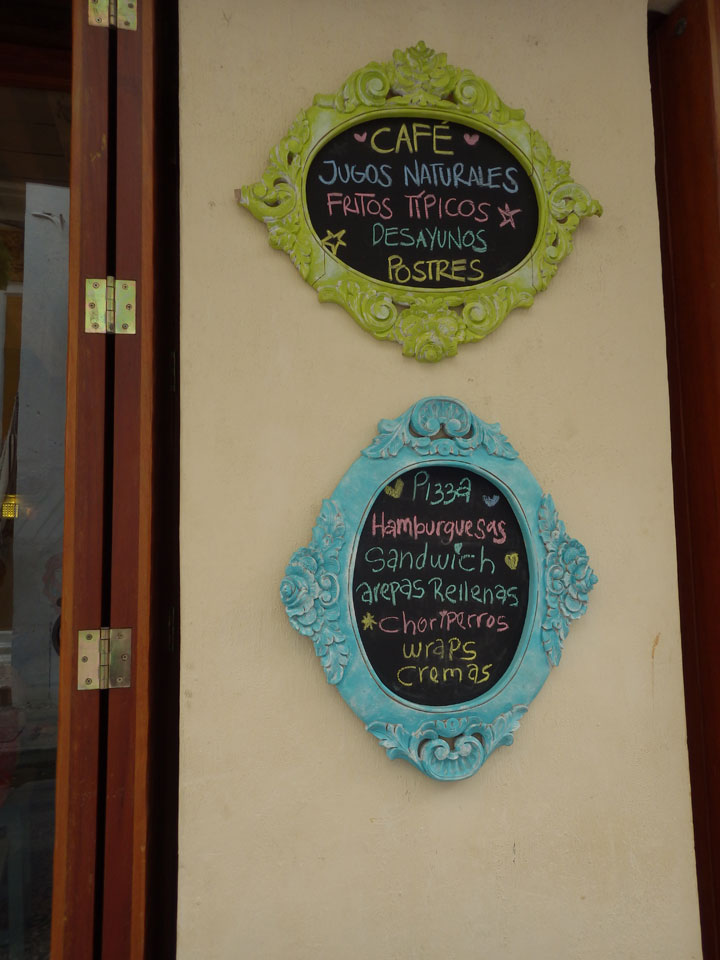 CAFÉ
JUGOS NATURALES
FRITOS TÍPICOS
DESAYUNOS
POSTRES
Pizza
Hamburguesas
Sandwich
arepas Rellenas
Choriperros
wraps
cremas